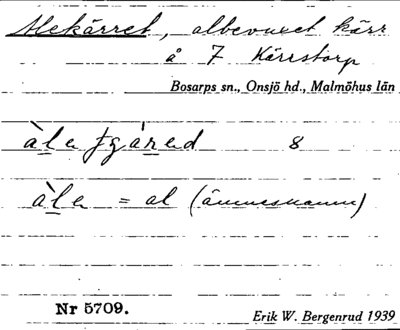 Alekärret, albevuxet kärr
å 7 Kärrstorp
Bosarps sn., Onsjö hd., Malmöhus län
àlatjáred 8
àla = al (ämnesnamn)
Nr 5709.
Erik W. Bergenrud 1939